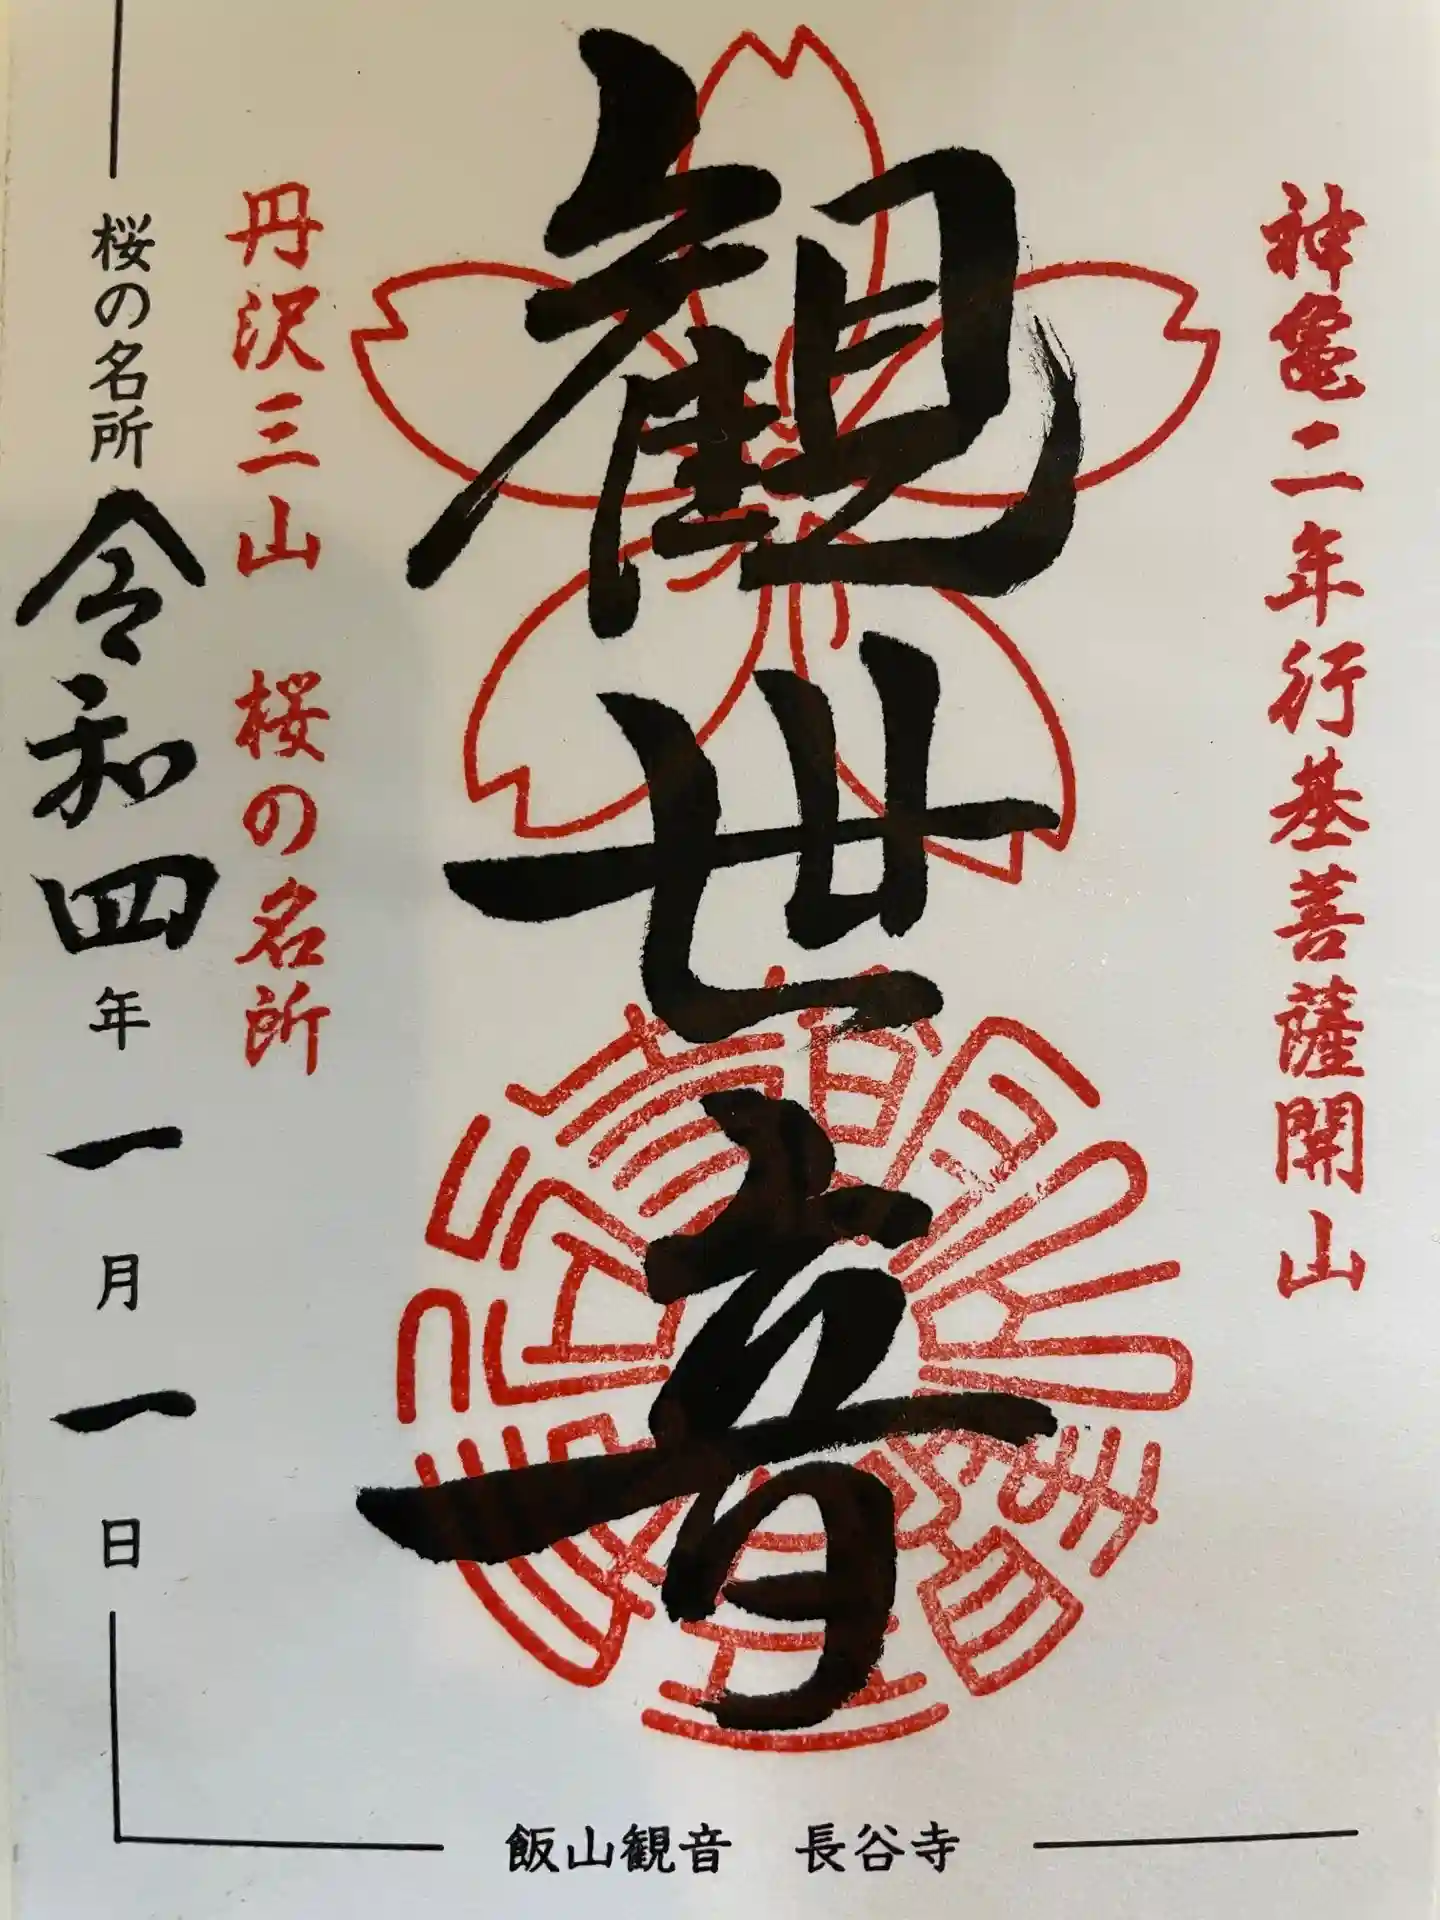 神亀二年行基菩薩開山
観世音
丹沢三山 桜の名所
桜の名所 令和四年一月一日
飯山観音 長谷寺